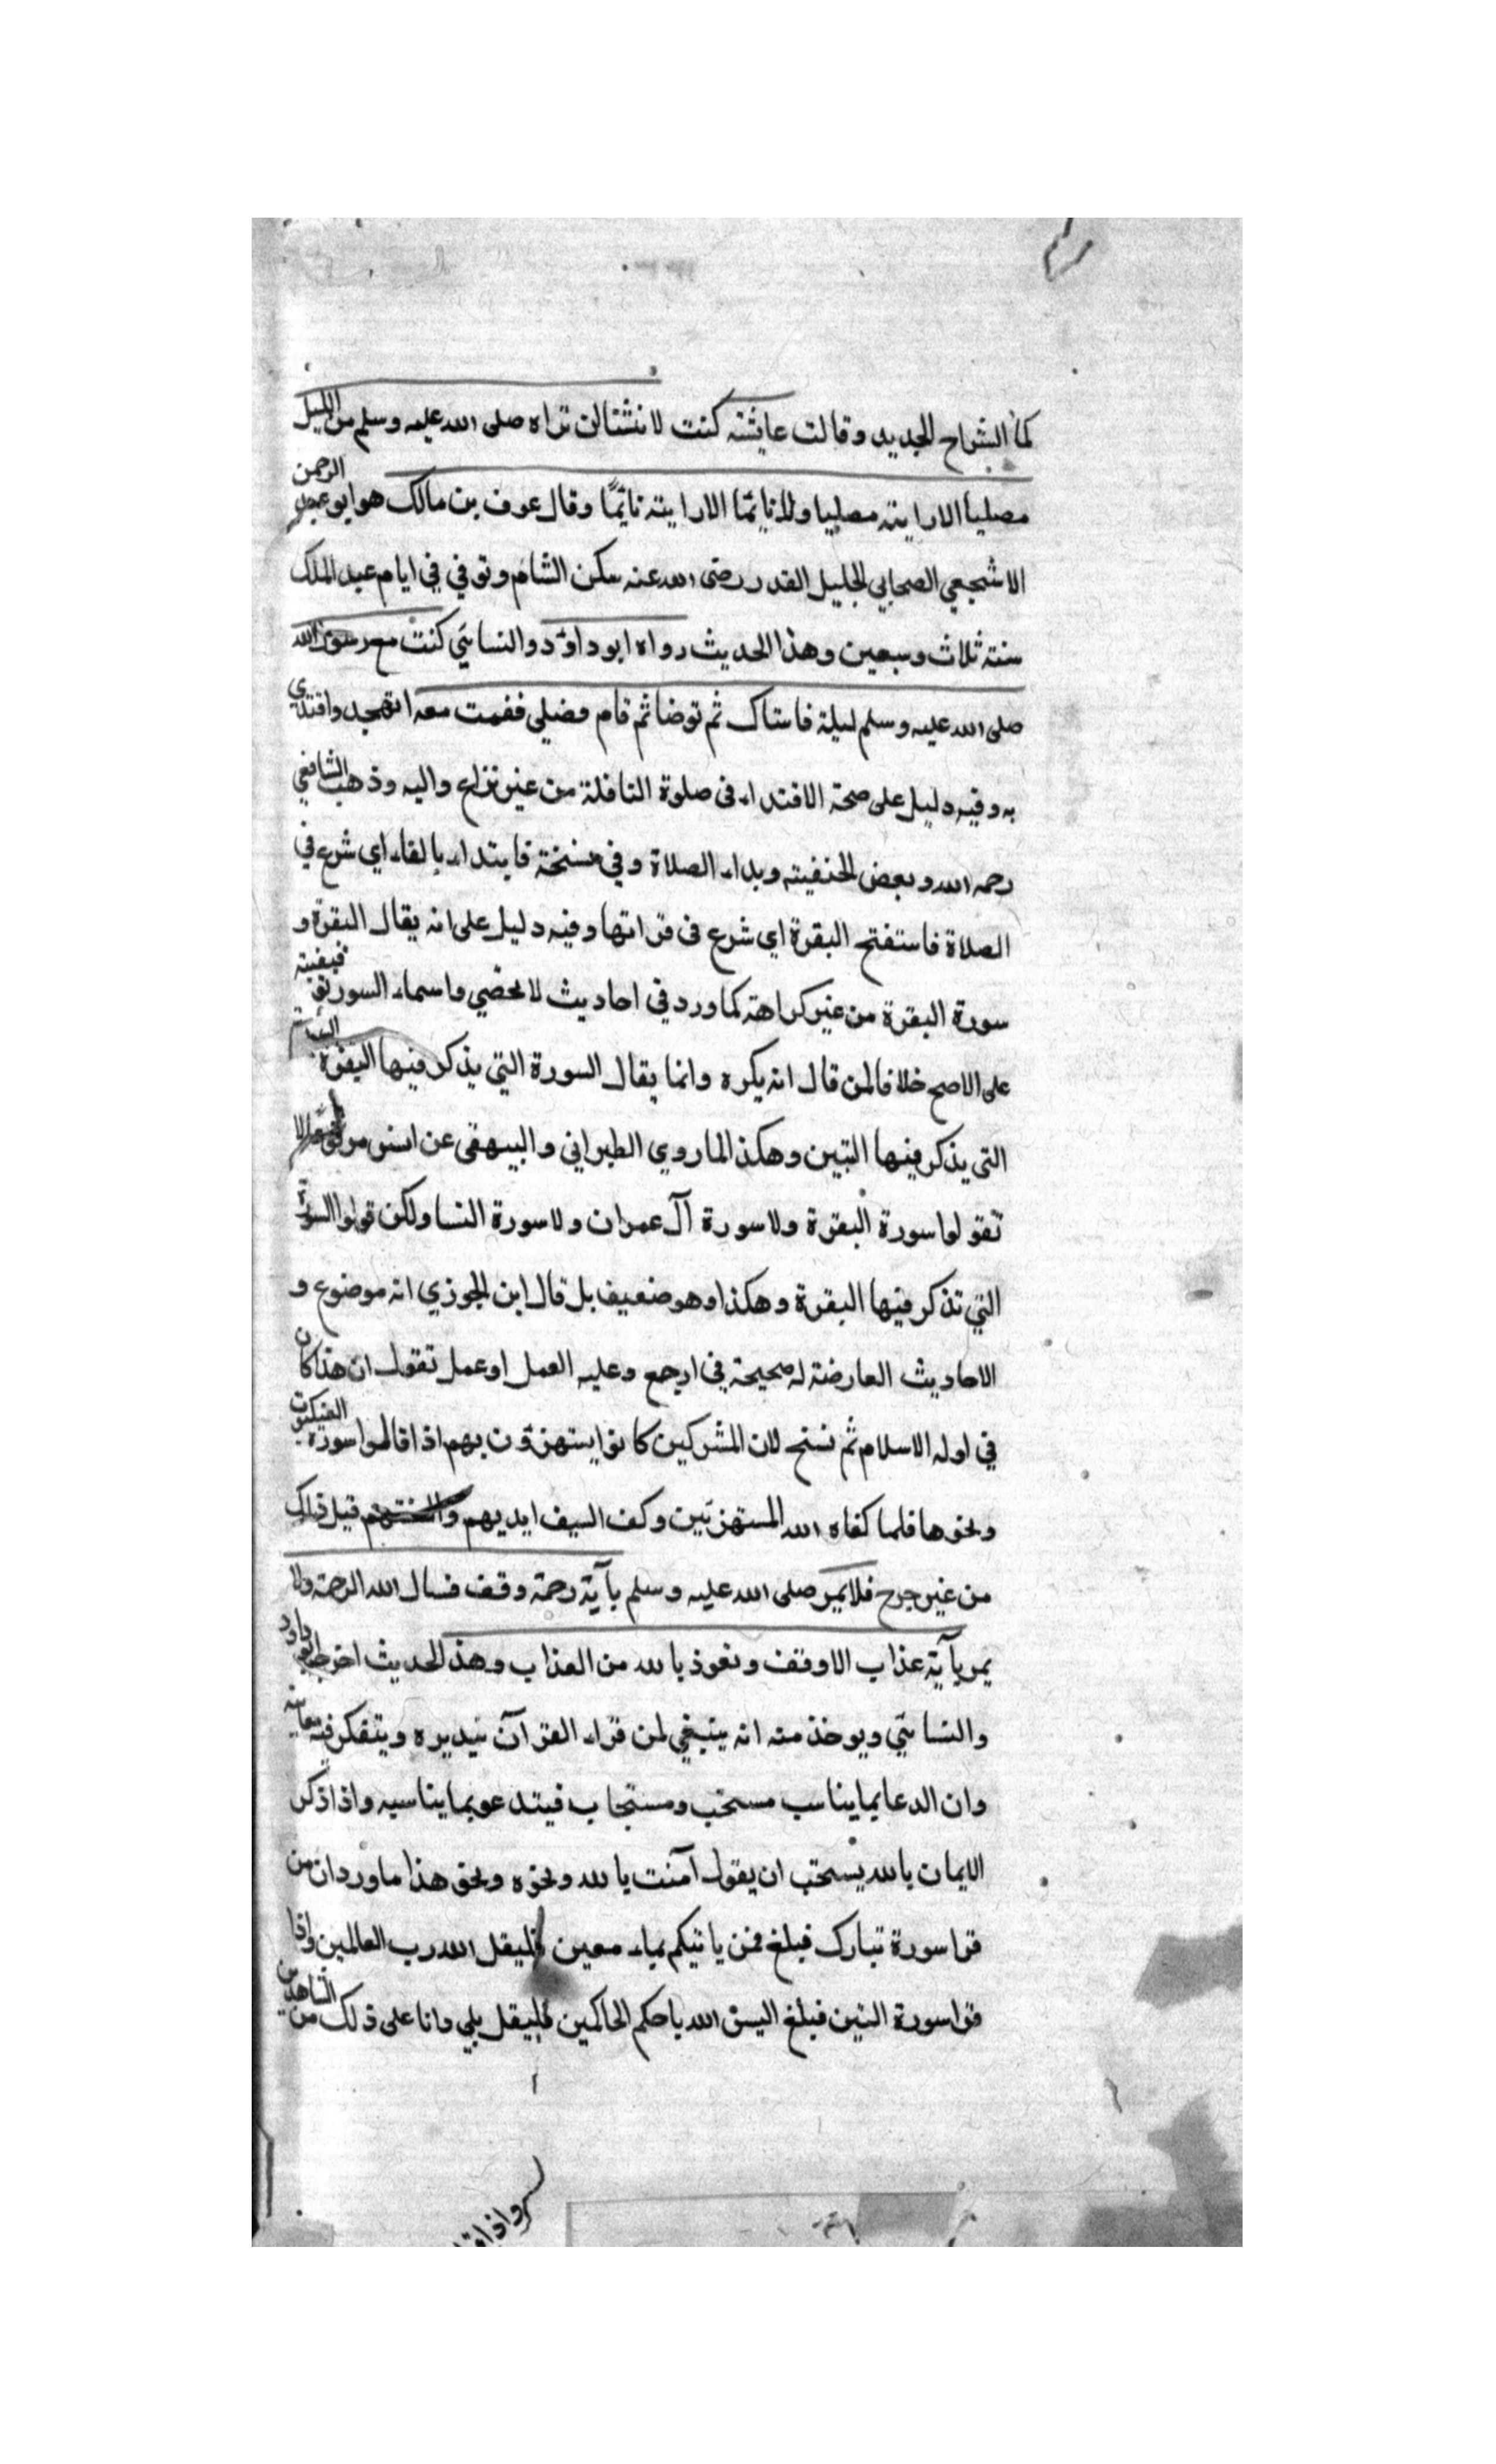 كما الشراح الجديد وقالت عايشة كنت لا نشتالن تراه صلى الله عليه وسلم من الليل
مصليا الا رايته مصليا ولا نايما الا رايته نايمًا وقال عوف بن مالك هو ابو عبد الرحمن
الاشجعي الصحابي الجليل القدر رضى الله عنه سكن الشام وتوفي في ايام عبد الملك
سنة ثلاث وسبعين وهذا الحديث رواه ابو داؤد والنسائي كنت مع رسول الله
صلى الله عليه وسلم ليلة فاستاك ثم توضا ثم قام فصلى فقمت معه اتهجد واقتدي
به وفيه دليل على صحة الاقتداء فى صلوة النافلة من غير نزاع واليه وذهب الشافعي
رحمه الله وبعض الحنفية وبداء الصلاة وفي نسخة فابتداء بالفاء اي شرع في
الصلاة فاستفتح البقرة اي شرع فى قراتها وفيه دليل على انه يقال البقرة و
سورة البقرة من غير كراهة كما ورد في احاديث لا تحصي واسماء السور توقيفية
على الاصح خلافا لمن قال انه يكره وانما يقال السورة التي يذكر فيها البقرة
التى يذكر فيها التين وهكذا لما روي الطبراني والبيهقى عن انس مرفوعا لا
تقولوا سورة البقرة ولا سورة آل عمران ولا سورة النسا ولكن قولوا السورة
التي تذكر فيها البقرة وهكذا وهو ضعيف بل قال ابن الجوزي انه موضوع و
الاحاديث العارضة له صحيحة في ارجع وعليه العمل او عمل تقول ان هذا كان
في اوله الاسلام ثم نسخ لان المشركين كانوا يستهزؤن بهم اذا قالوا سورة العنكبوت
ونحوها فلما كفاه الله المستهزئين وكف السيف ايديهم والسنتهم قيل ذلك
من غير حرج فلا يمر صلى الله عليه وسلم بآية رحمة وقف فسال الله الرحمة ولا
يمر بآية عذاب الا وقف وتعوذ بالله من العذاب وهذ الحديث اخرجه ابو داود
والنسائي ويوخذ منه انه ينبغي لمن قراء القرآن يتدبره ويتفكر في معانيه
وان الدعا بما يناسب مستحب ومستجاب فيتدعو بما يناسبه واذا ذكر
الايمان بالله يستحب ان يقول آمنت بالله ونحوه ونحو هذا ما ورد ان من
قرا سورة تبارك فبلغ فمن ياتيكم بماء معين فليقل الله رب العالمين واذا
قرا سورة التين فبلغ اليس الله باحكم الحاكمين فليقل بلي وانا على ذلك من الشاهدين